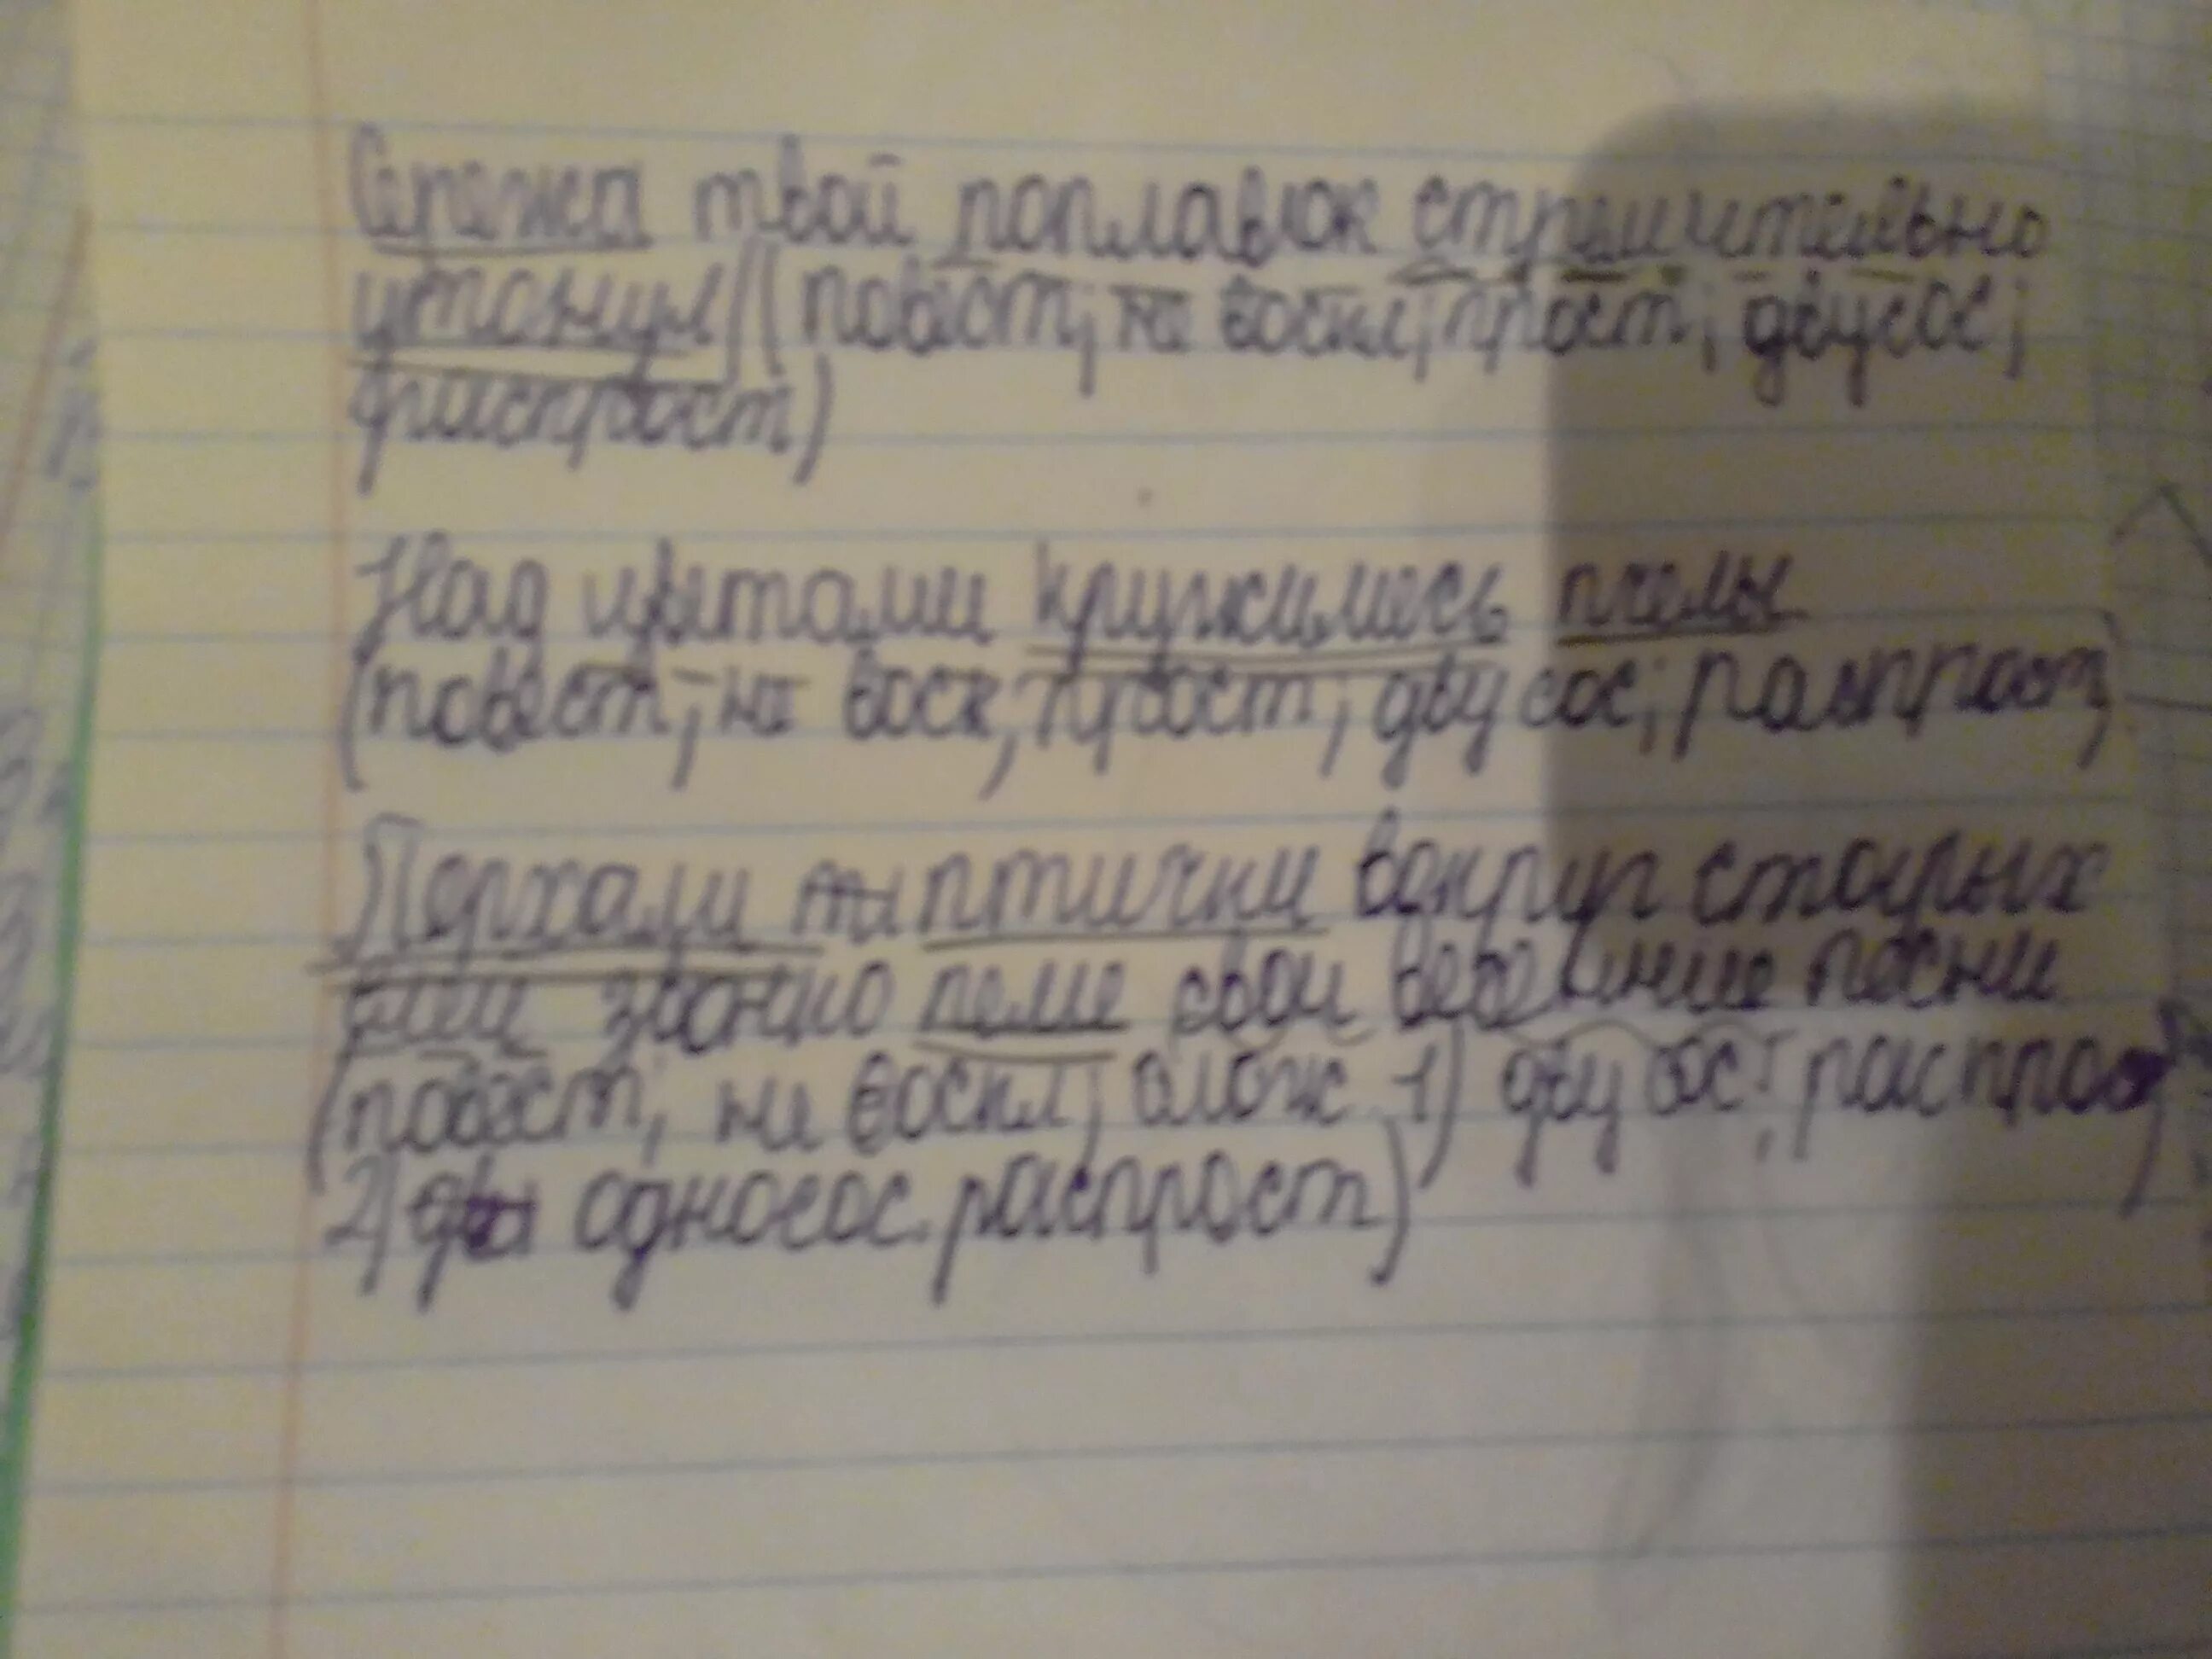 Сережа твой поплавок стремительно
утонул (повест; не воскл; прост; двусос;
распрост)
Над цветами кружились пчелы
(повест; не воск; прост; двусос; распрост)
Порхали птички вокруг старых
звонко пели свои весенние песни
(повест; не воскл; слож 1) двусос; распрост
2) односос. распрост)